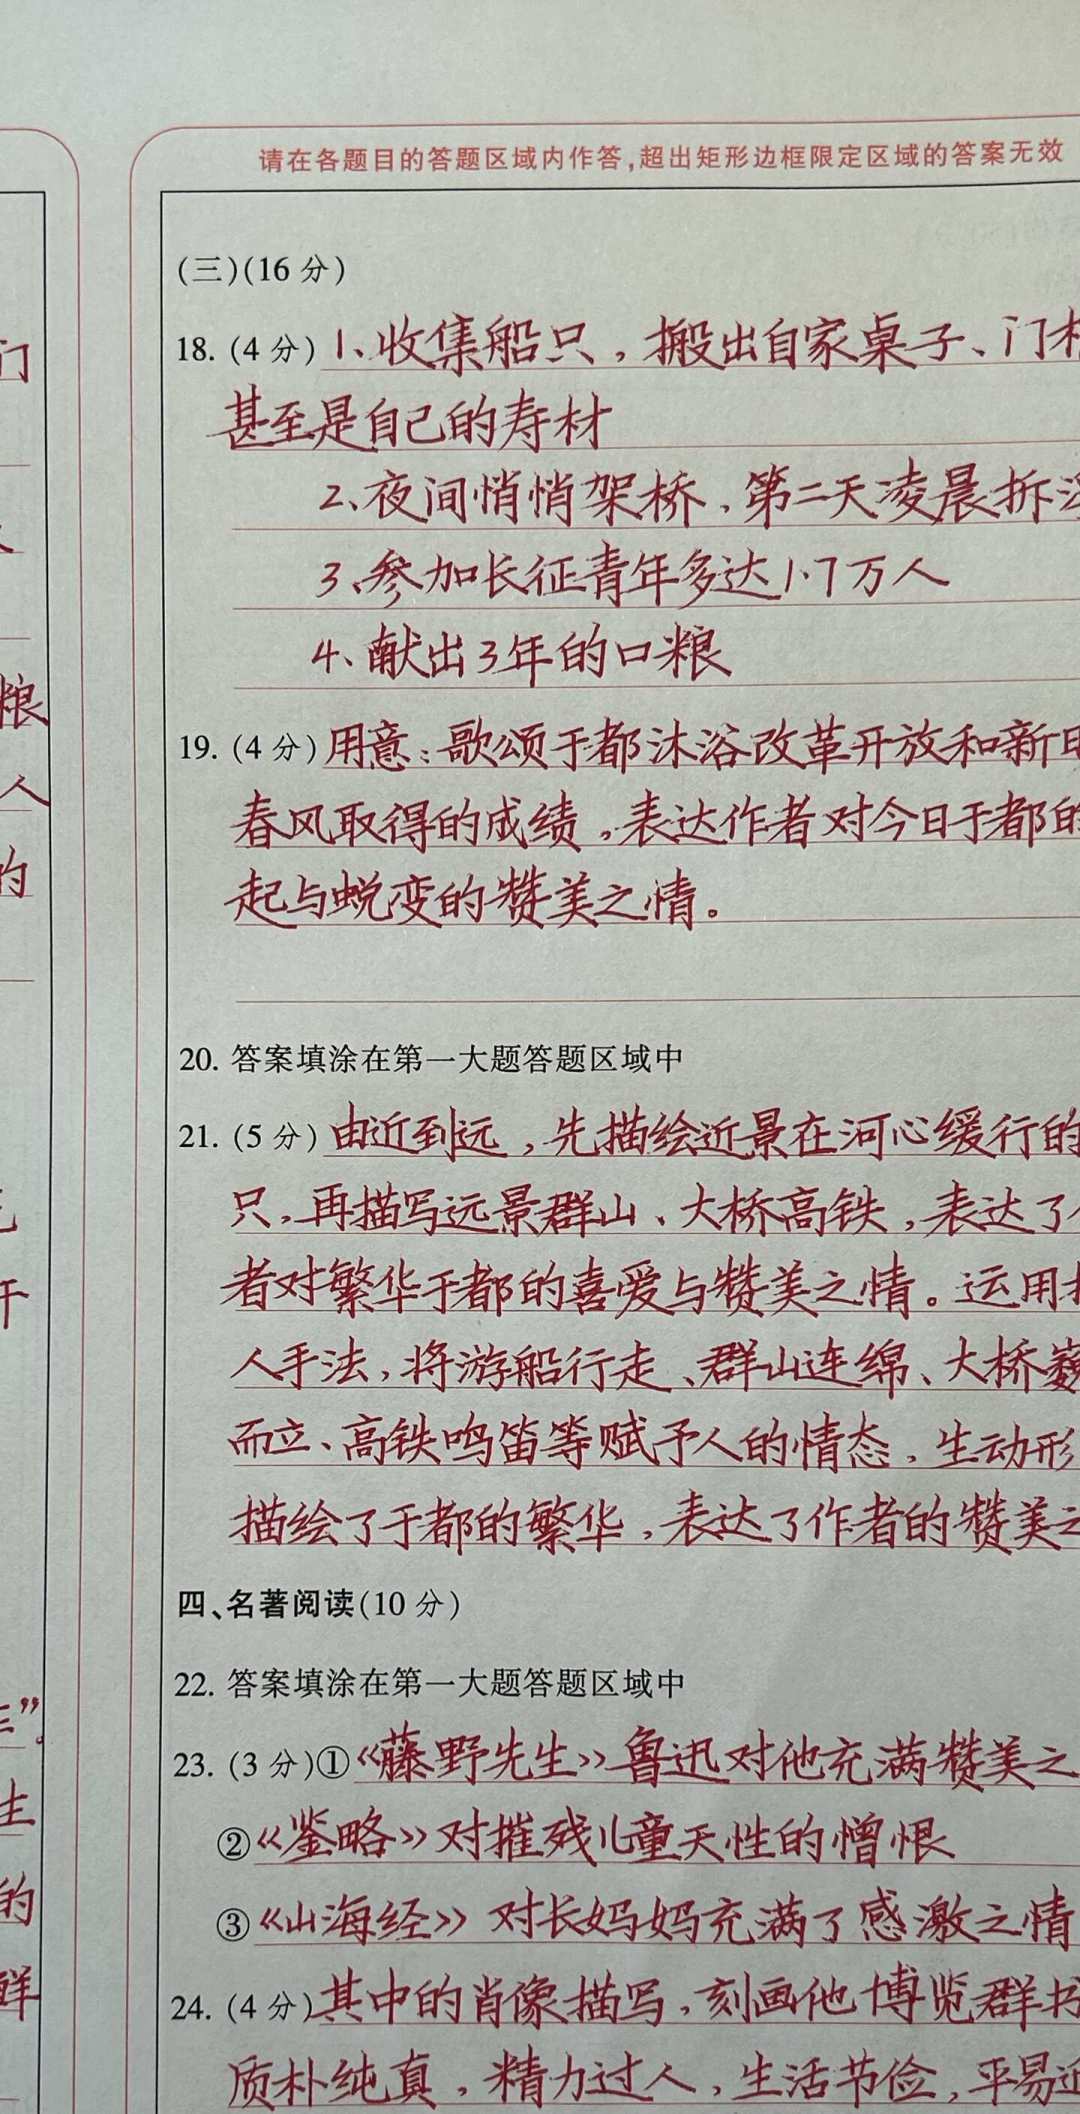 请在各题目的答题区域内作答,超出矩形边框限定区域的答案无效
(三)(16 分)
18. (4 分) 1、收集船只，搬出自家桌子、门
甚至是自己的寿材
2、夜间悄悄架桥，第二天凌晨拆
3、参加长征青年多达1.7万人
4、献出3年的口粮
19. (4 分) 用意：歌颂于都沐浴改革开放和新
春风取得的成绩，表达作者对今日于都的
起与蜕变的赞美之情。
20. 答案填涂在第一大题答题区域中
21. (5 分) 由近到远，先描绘近景在河心缓行的
只，再描写远景群山、大桥高铁，表达了
者对繁华于都的喜爱与赞美之情。运用
人手法，将游船行走、群山连绵、大桥巍
而立、高铁鸣笛等赋予人的情态，生动形
描绘了于都的繁华，表达了作者的赞美之
四、名著阅读(10 分)
22. 答案填涂在第一大题答题区域中
23. (3 分)①《藤野先生》鲁迅对他充满赞美之
②《鉴略》对摧残儿童天性的憎恨
③《山海经》对长妈妈充满了感激之情
24. (4 分) 其中的肖像描写，刻画他博览群书
质朴纯真，精力过人，生活节俭，平易近
门
粮
人
的
开
生
的
鲜